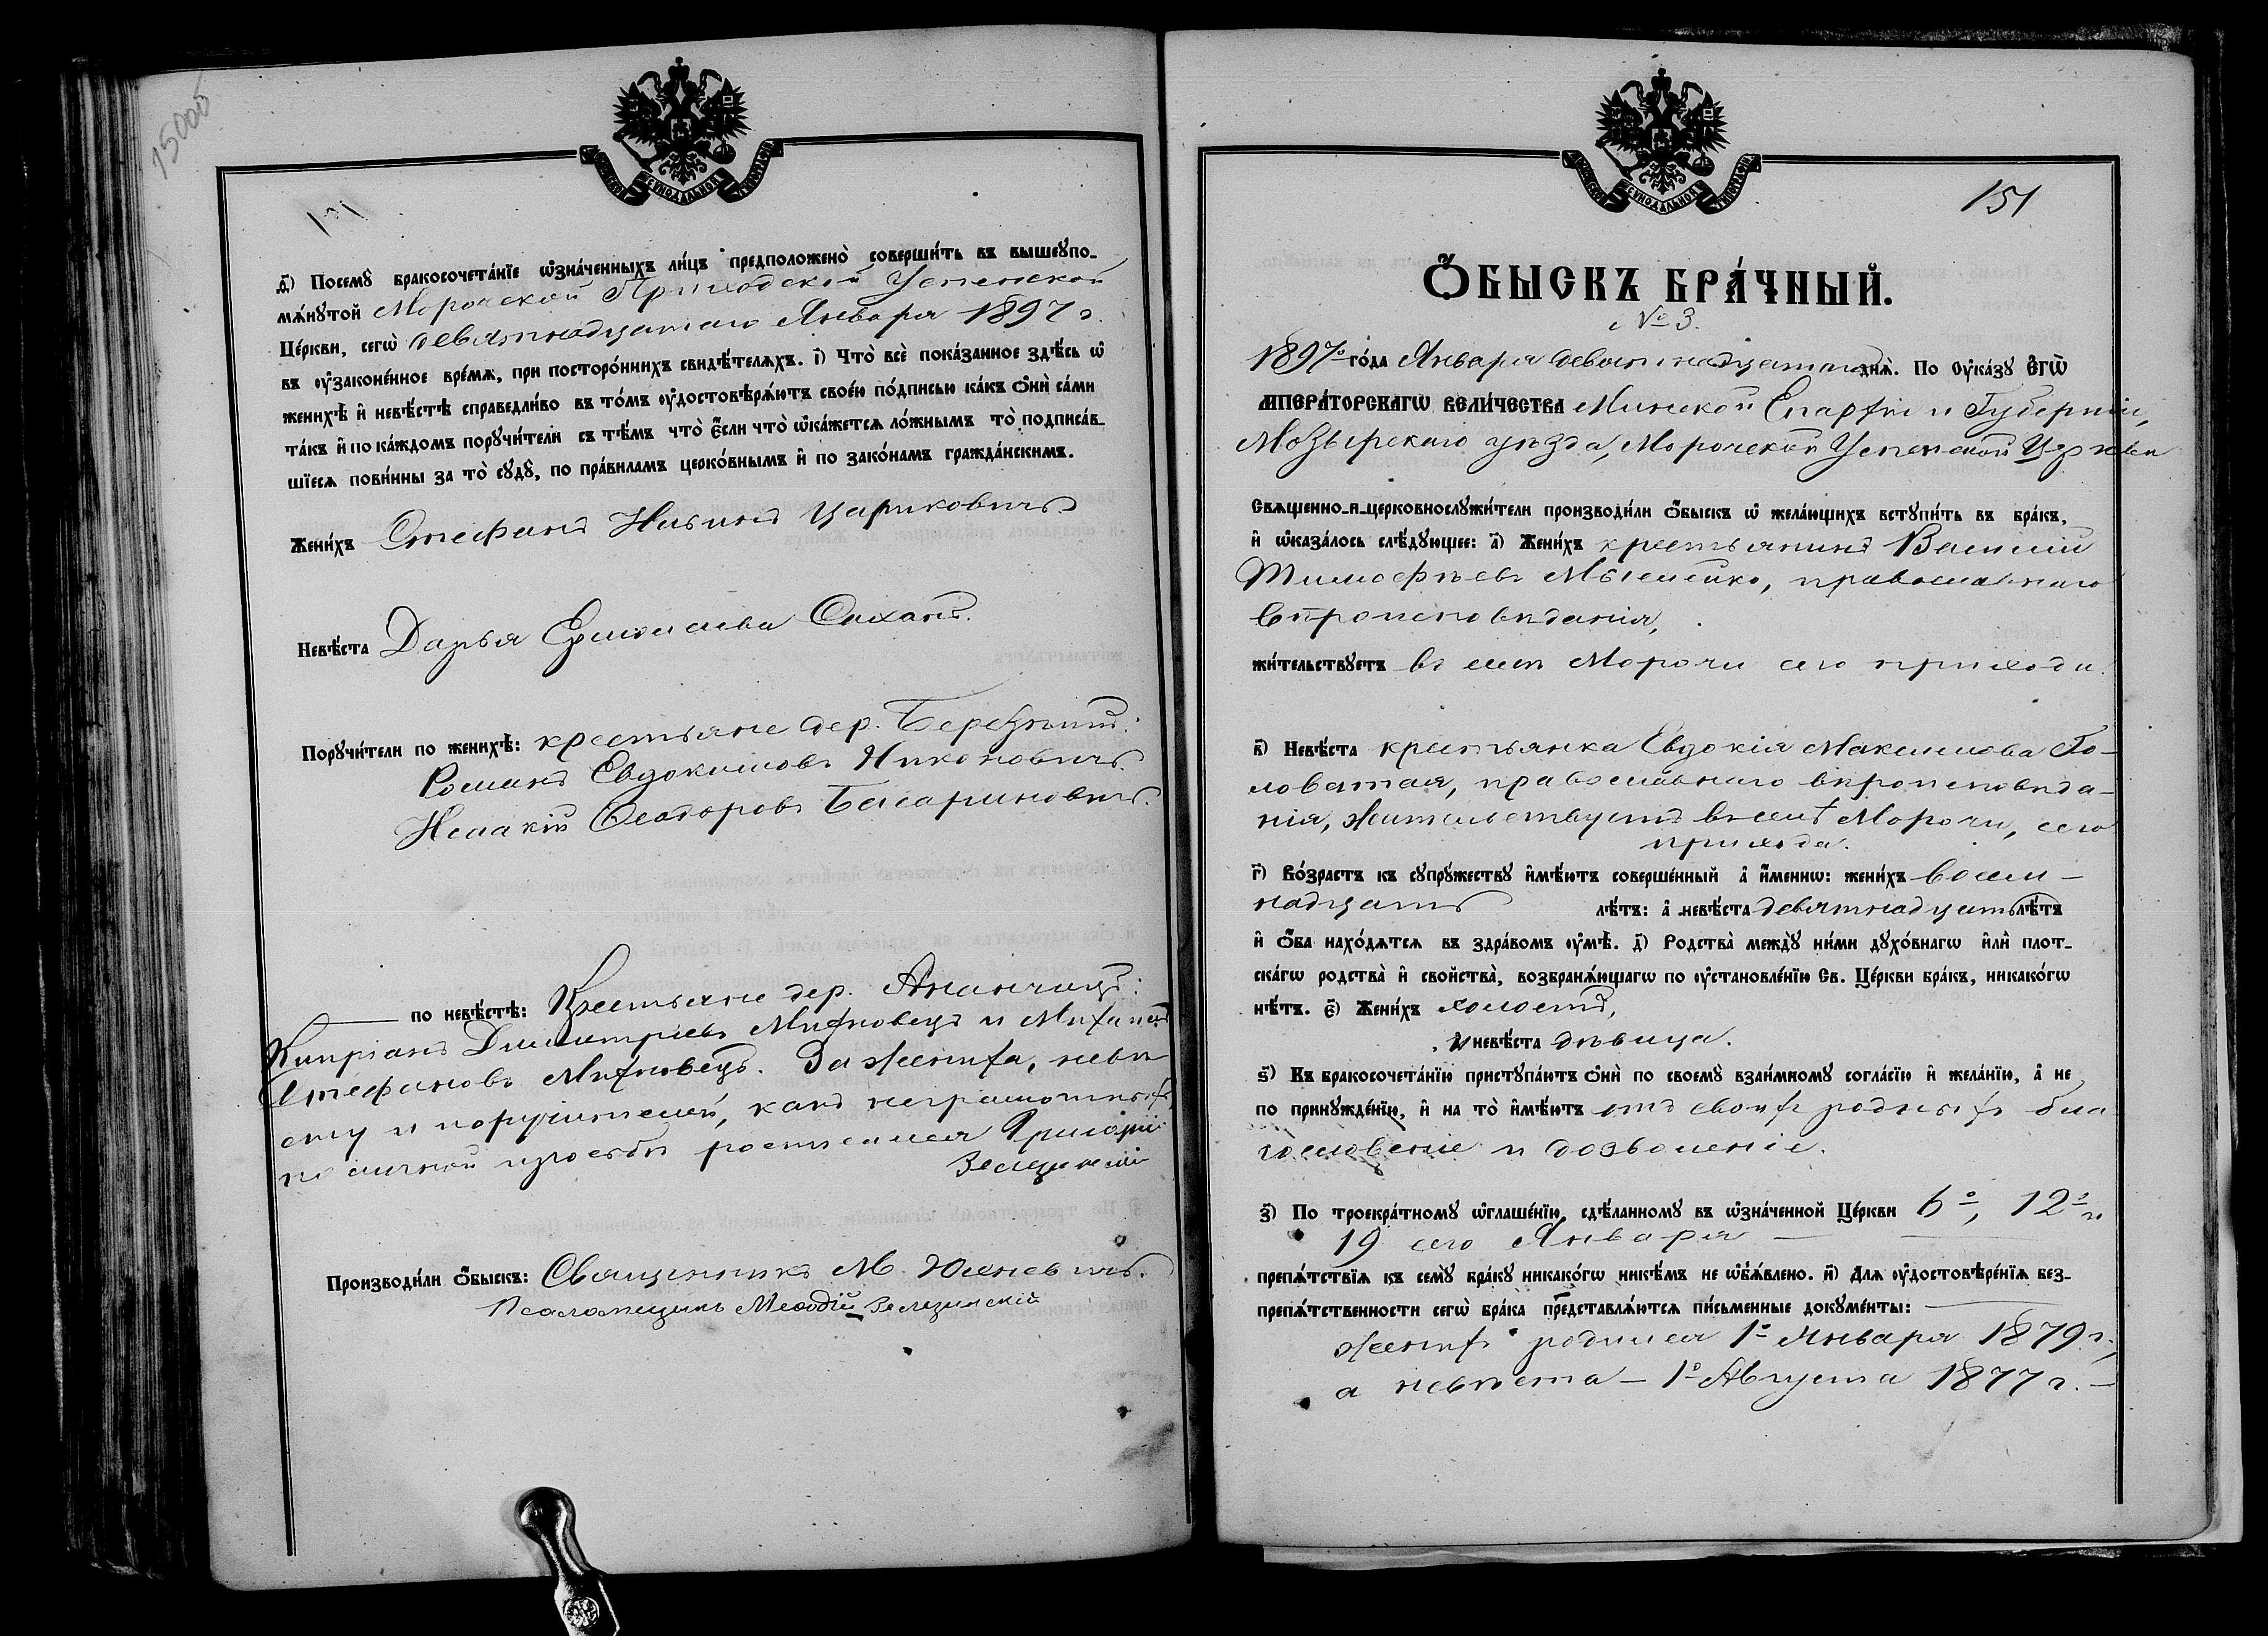 150об
СѴНОДАЛЬНОЙ
д҃) Посемꙋ̀ бракосочета́нїе ѡ҆зна́ченныхъ ли́цъ предположено̀ соверши́ть въ вышеꙋпо-
мѧ́нꙋтой Морочской Приходской Успенской
Це́ркви, сегѡ̀ девятнадцатаго Января 1897 г.
въ ᲂу҆законе́нное вре́мѧ, при посторо́ннихъ свидѣ́телѧхъ. і҃) Что̀ всѐ пока́занное здѣ́сь ѡ҆
женихѣ̀ и҆ невѣ́стѣ справедли́во въ то́мъ ᲂу҆достовѣрѧ́ютъ свое́ю по́дписью ка́къ ѻ҆нѝ са́ми
та́къ и҆ по ка́ждомъ порꙋчи́тели съ тѣ́мъ что̀ є҆́сли что̀ ѡ҆ка́жется ло́жнымъ то̀ подписа́в-
шїеся пови́нны за то̀ сꙋдꙋ̀, по пра́виламъ церко́внымъ и҆ по зако́намъ гражда́нскимъ.
Жени́хъ Стефанъ Ильинъ Цариковичъ
Невѣ́ста Дарья Ермолаева Сахонь.
Порꙋчи́тели по женихѣ̀: крестьяне дер.
Романъ Евдокимовъ Никоновичъ.
Исаакій Ѳеодоровъ
по невѣ́стѣ: Крестьяне дер. Ананчицъ:
Кипріанъ Димитріевъ Михновецъ и Михаилъ
Стефановъ Михновецъ. За жениха, невѣ-
сту и поручителей, какъ неграмотныхъ,
по личной просьбѣ росписался Григорій
Зелезинскій
Производи́ли ѻ҆́быскъ: Священникъ М. Юзневичъ.
Псаломщикъ Меѳодій Зелезинскій
СѴНОДАЛЬНОЙ
151
Ѻ҆́БЫСКЪ БРА́ЧНЫЙ.
№ 3.
1897го го́да Января девятнадцатаго днѧ̀. По ᲂу҆ка́зꙋ Є҆ГѠ̀
ИМПЕРА́ТОРСКАГѠ ВЕЛИ́ЧЕСТВА Минской Епархіи и Губерніи,
Мозырскаго уѣзда, Морочской Успенской Церкви
Свѧщенно-и-церковнослꙋжи́тели производи́ли ѻ҆́быскъ ѡ҆ жела́ющихъ встꙋпи́ть въ бра́къ,
и҆ ѡ҆каза́лось слѣ́дꙋющее: а҃) Жени́хъ крестьянинъ Василій
Тимоѳеевъ православнаго
вѣроисповѣданія,
жи́тельствꙋетъ въ селѣ Морочи сего прихода.
в҃) Невѣ́ста крестьянка Евдокія Максимова Го-
ловатая, православнаго вѣроисповѣда-
нія, жительствуетъ въ селѣ Морочи, сего
прихода.
г҃) Во́зрастъ къ сꙋпрꙋ́жествꙋ и҆мѣ́ютъ соверше́нный а҆ и҆́меннѡ: жени́хъ восем-
надцать лѣ́тъ: а҆ невѣ́ста девятнадцать лѣ́тъ
и҆ ѻ҆́ба нахо́дѧтсѧ въ здра́вомъ ᲂу҆мѣ̀. д҃) Родства̀ междꙋ̀ ни́ми дꙋхо́внагѡ и҆лѝ плот-
ска́гѡ родства̀ и҆ свойства̀, возбранѧ́ющагѡ по ᲂу҆становле́нїю Св. Це́ркви бра́къ, никако́гѡ
нѣ́тъ. є҃) Жени́хъ холостъ,
и невѣ́ста дѣвица.
ѕ҃) Къ бракосочета́нїю пристꙋпа́ютъ ѻ҆нѝ по своемꙋ̀ взаи́мномꙋ согла́сїю и҆ жела́нїю, а҆ не
по принꙋжде́нїю, и҆ на то̀ и҆мѣ́ютъ отъ своихъ родныхъ бла-
гословеніе и дозволеніе.
з҃) По троекра́тномꙋ ѡ҆глаше́нїю, сдѣ́ланномꙋ въ ѡ҆зна́ченной Це́ркви 6о, 12о и
19 сего Января
препѧ́тствїѧ къ семꙋ̀ бра́кꙋ никако́гѡ никѣ́мъ не ѡ҆б̾ѧ́влено. и҃) Длѧ ᲂу҆достовѣре́нїѧ без-
препѧ́тственности сегѡ̀ бра́ка представлѧ́ютсѧ пи́сьменные докꙋме́нты:
женихъ родился 1о Января 1879 г.,
а невѣста — 1о Августа 1877 г. —